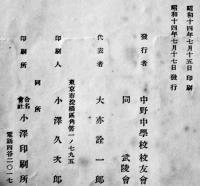 昭和十四年七月十五日 印刷
昭和十四年七月十七日 發行
發行者 中野中學校校友會
同 武陵會
代表者 大亦詮一郎
東京市淀橋區角筈一ノ七九五
印刷人 小澤久次郎
同所
印刷所 合名會社 小澤印刷所
電話四谷二〇一七